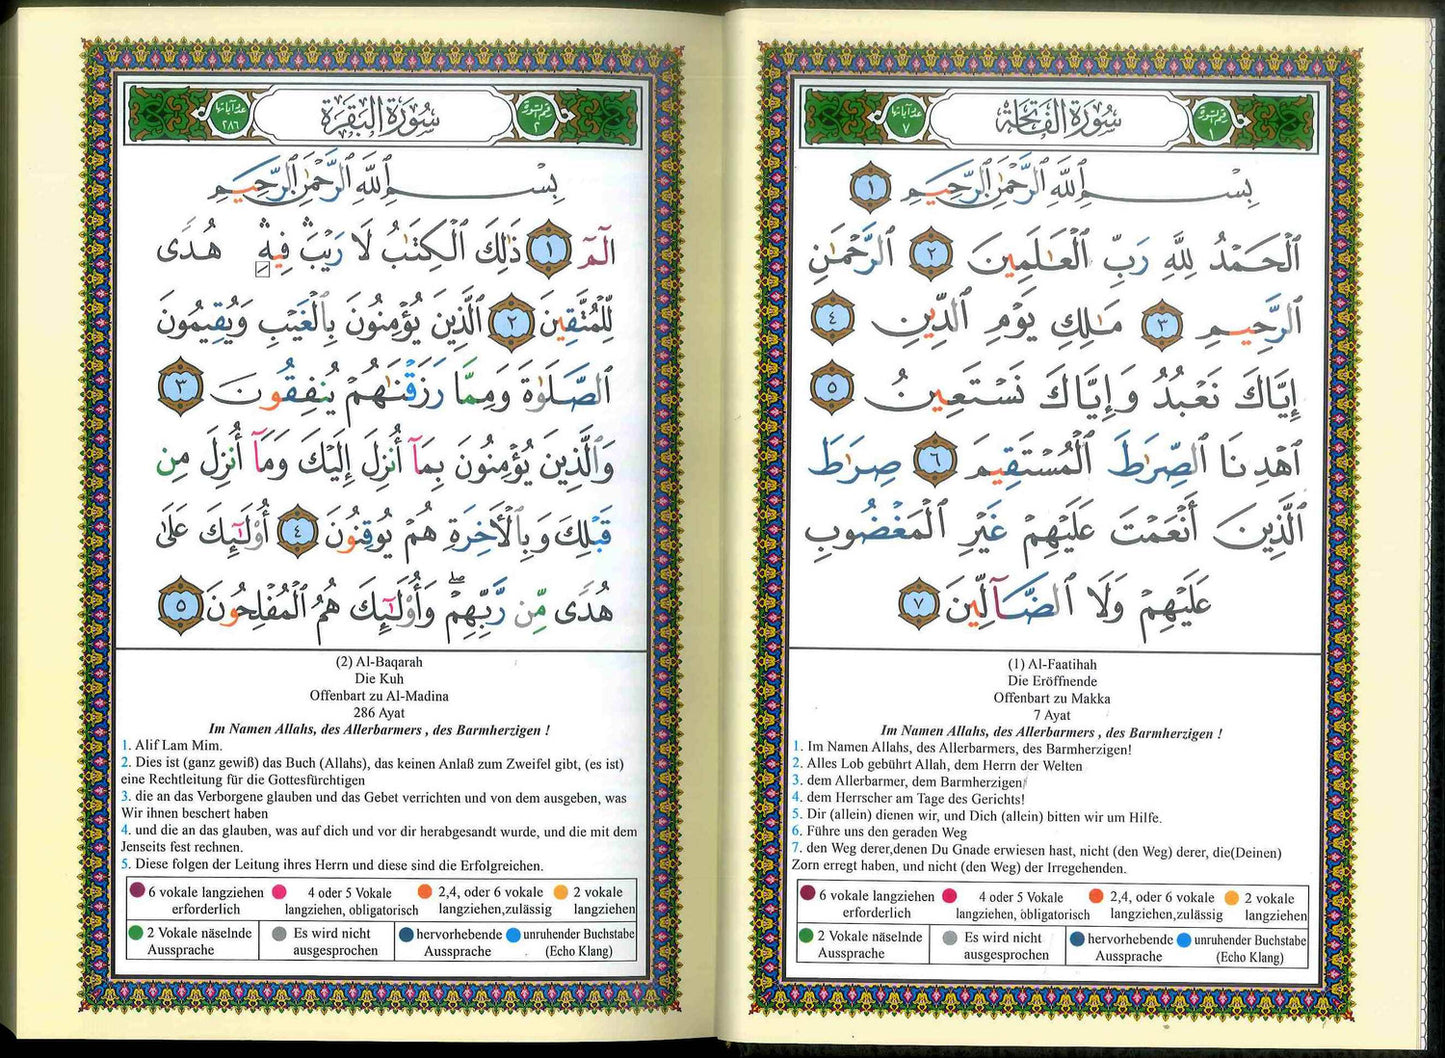 سُورَةُ الفَاتِحَةِ
رقم السورة
١
عدد آياتها
٧
بِسْمِ ٱللَّهِ ٱلرَّحْمَٰنِ ٱلرَّحِيمِ ١
ٱلْحَمْدُ لِلَّهِ رَبِّ ٱلْعَٰلَمِينَ ٢ ٱلرَّحْمَٰنِ
ٱلرَّحِيمِ ٣ مَٰلِكِ يَوْمِ ٱلدِّينِ ٤
إِيَّاكَ نَعْبُدُ وَإِيَّاكَ نَسْتَعِينُ ٥
ٱهْدِنَا ٱلصِّرَٰطَ ٱلْمُسْتَقِيمَ ٦ صِرَٰطَ
ٱلَّذِينَ أَنْعَمْتَ عَلَيْهِمْ غَيْرِ ٱلْمَغْضُوبِ
عَلَيْهِمْ وَلَا ٱلضَّآلِّينَ ٧
(1) Al-Faatihah
Die Eröffnende
Offenbart zu Makka
7 Ayat
Im Namen Allahs, des Allerbarmers , des Barmherzigen !
1. Im Namen Allahs, des Allerbarmers, des Barmherzigen!
2. Alles Lob gebührt Allah, dem Herrn der Welten
3. dem Allerbarmer, dem Barmherzigen
4. dem Herrscher am Tage des Gerichts!
5. Dir (allein) dienen wir, und Dich (allein) bitten wir um Hilfe.
6. Führe uns den geraden Weg
7. den Weg derer,denen Du Gnade erwiesen hast, nicht (den Weg) derer, die(Deinen)
Zorn erregt haben, und nicht (den Weg) der Irregehenden.
6 vokale langziehen
erforderlich
4 oder 5 Vokale
langziehen, obligatorisch
2,4, oder 6 vokale
langziehen,zulässig
2 vokale
langziehen
2 Vokale näselnde
Aussprache
Es wird nicht
ausgesprochen
hervorhebende
Aussprache
unruhender Buchstabe
(Echo Klang)
سُورَةُ البَقَرَةِ
رقم السورة
٢
عدد آياتها
٢٨٦
بِسْمِ ٱللَّهِ ٱلرَّحْمَٰنِ ٱلرَّحِيمِ
الٓمٓ ١ ذَٰلِكَ ٱلْكِتَٰبُ لَا رَيْبَ ۛ فِيهِ ۛ هُدًى
لِّلْمُتَّقِينَ ٢ ٱلَّذِينَ يُؤْمِنُونَ بِٱلْغَيْبِ وَيُقِيمُونَ
ٱلصَّلَوٰةَ وَمِمَّا رَزَقْنَٰهُمْ يُنفِقُونَ ٣
وَٱلَّذِينَ يُؤْمِنُونَ بِمَآ أُنزِلَ إِلَيْكَ وَمَآ أُنزِلَ مِن
قَبْلِكَ وَبِٱلْأَخِرَةِ هُمْ يُوقِنُونَ ٤ أُوْلَٰٓئِكَ عَلَىٰ
هُدًى مِّن رَّبِّهِمْ ۖ وَأُوْلَٰٓئِكَ هُمُ ٱلْمُفْلِحُونَ ٥
(2) Al-Baqarah
Die Kuh
Offenbart zu Al-Madina
286 Ayat
Im Namen Allahs, des Allerbarmers , des Barmherzigen !
1. Alif Lam Mim.
2. Dies ist (ganz gewiß) das Buch (Allahs), das keinen Anlaß zum Zweifel gibt, (es ist)
eine Rechtleitung für die Gottesfürchtigen
3. die an das Verborgene glauben und das Gebet verrichten und von dem ausgeben, was
Wir ihnen beschert haben
4. und die an das glauben, was auf dich und vor dir herabgesandt wurde, und die mit dem
Jenseits fest rechnen.
5. Diese folgen der Leitung ihres Herrn und diese sind die Erfolgreichen.
6 vokale langziehen
erforderlich
4 oder 5 Vokale
langziehen, obligatorisch
2,4, oder 6 vokale
langziehen,zulässig
2 vokale
langziehen
2 Vokale näselnde
Aussprache
Es wird nicht
ausgesprochen
hervorhebende
Aussprache
unruhender Buchstabe
(Echo Klang)